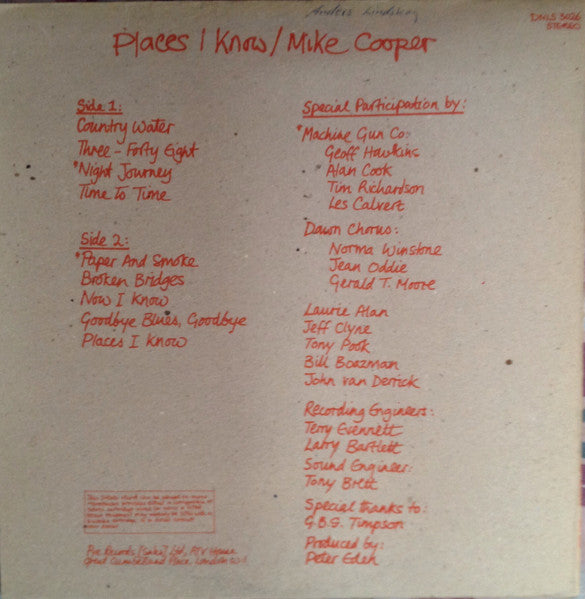 Anders Lindskog
DNLS 3026
STEREO
Places I Know / Mike Cooper
Side 1:
Country Water
Three - Forty Eight
*Night Journey
Time To Time
Side 2:
*Paper And Smoke
Broken Bridges
Now I Know
Goodbye Blues, Goodbye
Places I Know
Special Participation by:
*Machine Gun Co:
Geoff Hawkins
Alan Cook
Tim Richardson
Les Calvert
Dawn Chorus:
Norma Winstone
Jean Oddie
Gerald T. Moore
Laurie Alan
Jeff Clyne
Tony Pook
Bill Boazman
John van Derrick
Recording Engineers:
Terry Evennett
Larry Bartlett
Sound Engineer:
Tony Brett
Special thanks to:
G.B.G. Timpson
Produced by:
Peter Eden
This stereo record can be played on mono
Pye Records (Sales) Ltd, ATV House
Great Cumberland Place, London W.1